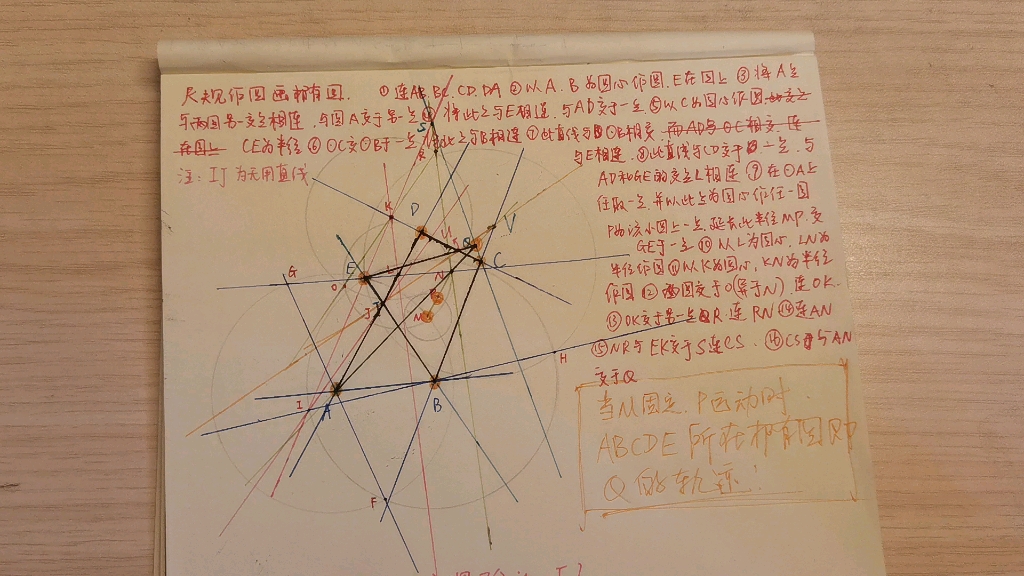 尺规作图画椭圆. ①连AB,BC,CD,DA ②以A.B为圆心作圆.E在圆上 ③将A与
与两圆另一交点相连 与圆A交于另一点④将此点与E相连.与AD交于一点⑤以C为圆心作圆
CE为半径 ⑥⊙C交⊙B于一点.将此点与B相连 ⑦此直线与⊙B相交
与E相连.⑧此直线与CD交于另一点.与
注:IJ为无用直线
AD和GE的交点L相连 ⑨在⊙A上
任取一点.并以此点为圆心作任一圆
P为该小圆上一点.延长此半径MP.交
GE于一点⑩以L为圆心.LN为
半径作圆⑪以K为圆心,KN为半径
作圆⑫两圆交于O(异于N)连OK.
⑬OK交于另一点R.连RN⑭连AN
⑮NR与EK交于S连CS. ⑯CS与AN
交于Q
当M固定.P运动时.
ABCDE所在椭圆即
Q的轨迹.
S
R
K
D
U
V
Q
G
E
L
C
O
N
J
M
H
I
A
B
F